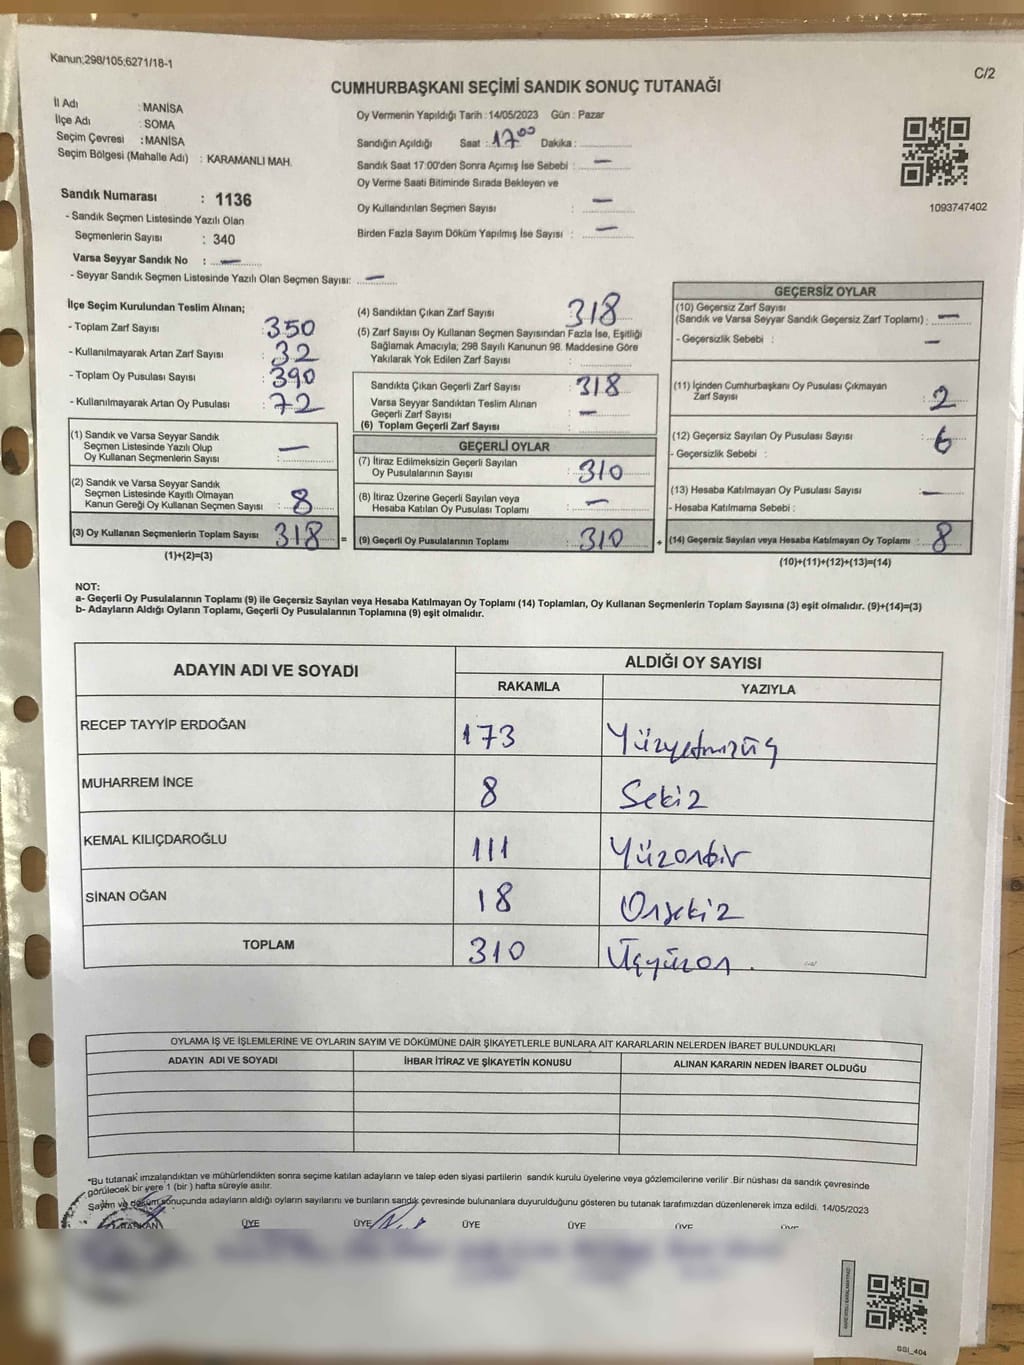 Kanun;298/105;6271/18-1
C/2
CUMHURBAŞKANI SEÇİMİ SANDIK SONUÇ TUTANAĞI
İl Adı : MANİSA
İlçe Adı : SOMA
Seçim Çevresi : MANİSA
Seçim Bölgesi (Mahalle Adı) : KARAMANLI MAH.
Oy Vermenin Yapıldığı Tarih : 14/05/2023 Gün : Pazar
Sandığın Açıldığı Saat : 17 00 Dakika :
Sandık Saat 17:00'den Sonra Açımış İse Sebebi : —
Oy Verme Saati Bitiminde Sırada Bekleyen ve
Oy Kullandırılan Seçmen Sayısı : —
Birden Fazla Sayım Döküm Yapılmış İse Sayısı : —
1093747402
Sandık Numarası : 1136
- Sandık Seçmen Listesinde Yazılı Olan
Seçmenlerin Sayısı : 340
Varsa Seyyar Sandık No : —
- Seyyar Sandık Seçmen Listesinde Yazılı Olan Seçmen Sayısı: —
İlçe Seçim Kurulundan Teslim Alınan;
- Toplam Zarf Sayısı : 350
- Kullanılmayarak Artan Zarf Sayısı : 32
- Toplam Oy Pusulası Sayısı : 390
- Kullanılmayarak Artan Oy Pusulası : 72
(1) Sandık ve Varsa Seyyar Sandık
Seçmen Listesinde Yazılı Olup
Oy Kullanan Seçmenlerin Sayısı : —
(2) Sandık ve Varsa Seyyar Sandık
Seçmen Listesinde Kayıtlı Olmayan
Kanun Gereği Oy Kullanan Seçmen Sayısı : 8
(3) Oy Kullanan Seçmenlerin Toplam Sayısı : 318 =
(1)+(2)=(3)
(4) Sandıktan Çıkan Zarf Sayısı : 318
(5) Zarf Sayısı Oy Kullanan Seçmen Sayısından Fazla İse, Eşitliği
Sağlamak Amacıyla; 298 Sayılı Kanunun 98. Maddesine Göre
Yakılarak Yok Edilen Zarf Sayısı :
Sandıkta Çıkan Geçerli Zarf Sayısı : 318
Varsa Seyyar Sandıktan Teslim Alınan
Geçerli Zarf Sayısı : —
(6) Toplam Geçerli Zarf Sayısı :
GEÇERLİ OYLAR
(7) İtiraz Edilmeksizin Geçerli Sayılan
Oy Pusulalarının Sayısı : 310
(8) İtiraz Üzerine Geçerli Sayılan veya
Hesaba Katılan Oy Pusulası Toplamı : —
(9) Geçerli Oy Pusulalarının Toplamı : 310 +
GEÇERSİZ OYLAR
(10) Geçersiz Zarf Sayısı
(Sandık ve Varsa Seyyar Sandık Geçersiz Zarf Toplamı) : —
- Geçersizlik Sebebi : —
(11) İçinden Cumhurbaşkanı Oy Pusulası Çıkmayan
Zarf Sayısı : 2
(12) Geçersiz Sayılan Oy Pusulası Sayısı : 6
- Geçersizlik Sebebi :
(13) Hesaba Katılmayan Oy Pusulası Sayısı : —
- Hesaba Katılmama Sebebi :
(14) Geçersiz Sayılan veya Hesaba Katılmayan Oy Toplamı : 8
(10)+(11)+(12)+(13)=(14)
NOT:
a- Geçerli Oy Pusulalarının Toplamı (9) ile Geçersiz Sayılan veya Hesaba Katılmayan Oy Toplamı (14) Toplamları, Oy Kullanan Seçmenlerin Toplam Sayısına (3) eşit olmalıdır. (9)+(14)=(3)
b- Adayların Aldığı Oyların Toplamı, Geçerli Oy Pusulalarının Toplamına (9) eşit olmalıdır.
ADAYIN ADI VE SOYADI ALDIĞI OY SAYISI
RAKAMLA YAZIYLA
RECEP TAYYİP ERDOĞAN 173 Yüzyetmişüç
MUHARREM İNCE 8 Sekiz
KEMAL KILIÇDAROĞLU 111 Yüzonbir
SİNAN OĞAN 18 Onsekiz
TOPLAM 310 Üçyüzon.
OYLAMA İŞ VE İŞLEMLERİNE VE OYLARIN SAYIM VE DÖKÜMÜNE DAİR ŞİKAYETLERLE BUNLARA AİT KARARLARIN NELERDEN İBARET BULUNDUKLARI
ADAYIN ADI VE SOYADI İHBAR İTİRAZ VE ŞİKAYETİN KONUSU ALINAN KARARIN NEDEN İBARET OLDUĞU
*Bu tutanak imzalandıktan ve mühürlendikten sonra seçime katılan adayların ve talep eden siyasi partilerin sandık kurulu üyelerine veya gözlemcilerine verilir .Bir nüshası da sandık çevresinde
görülecek bir yere 1 (bir ) hafta süreyle asılır.
Sayım ve döküm sonuçunda adayların aldığı oyların sayılarını ve bunların sandık çevresinde bulunanlara duyurulduğunu gösteren bu tutanak tarafımızdan düzenlenerek imza edildi. 14/05/2023
BAŞKAN ÜYE ÜYE ÜYE ÜYE ÜYE ÜYE